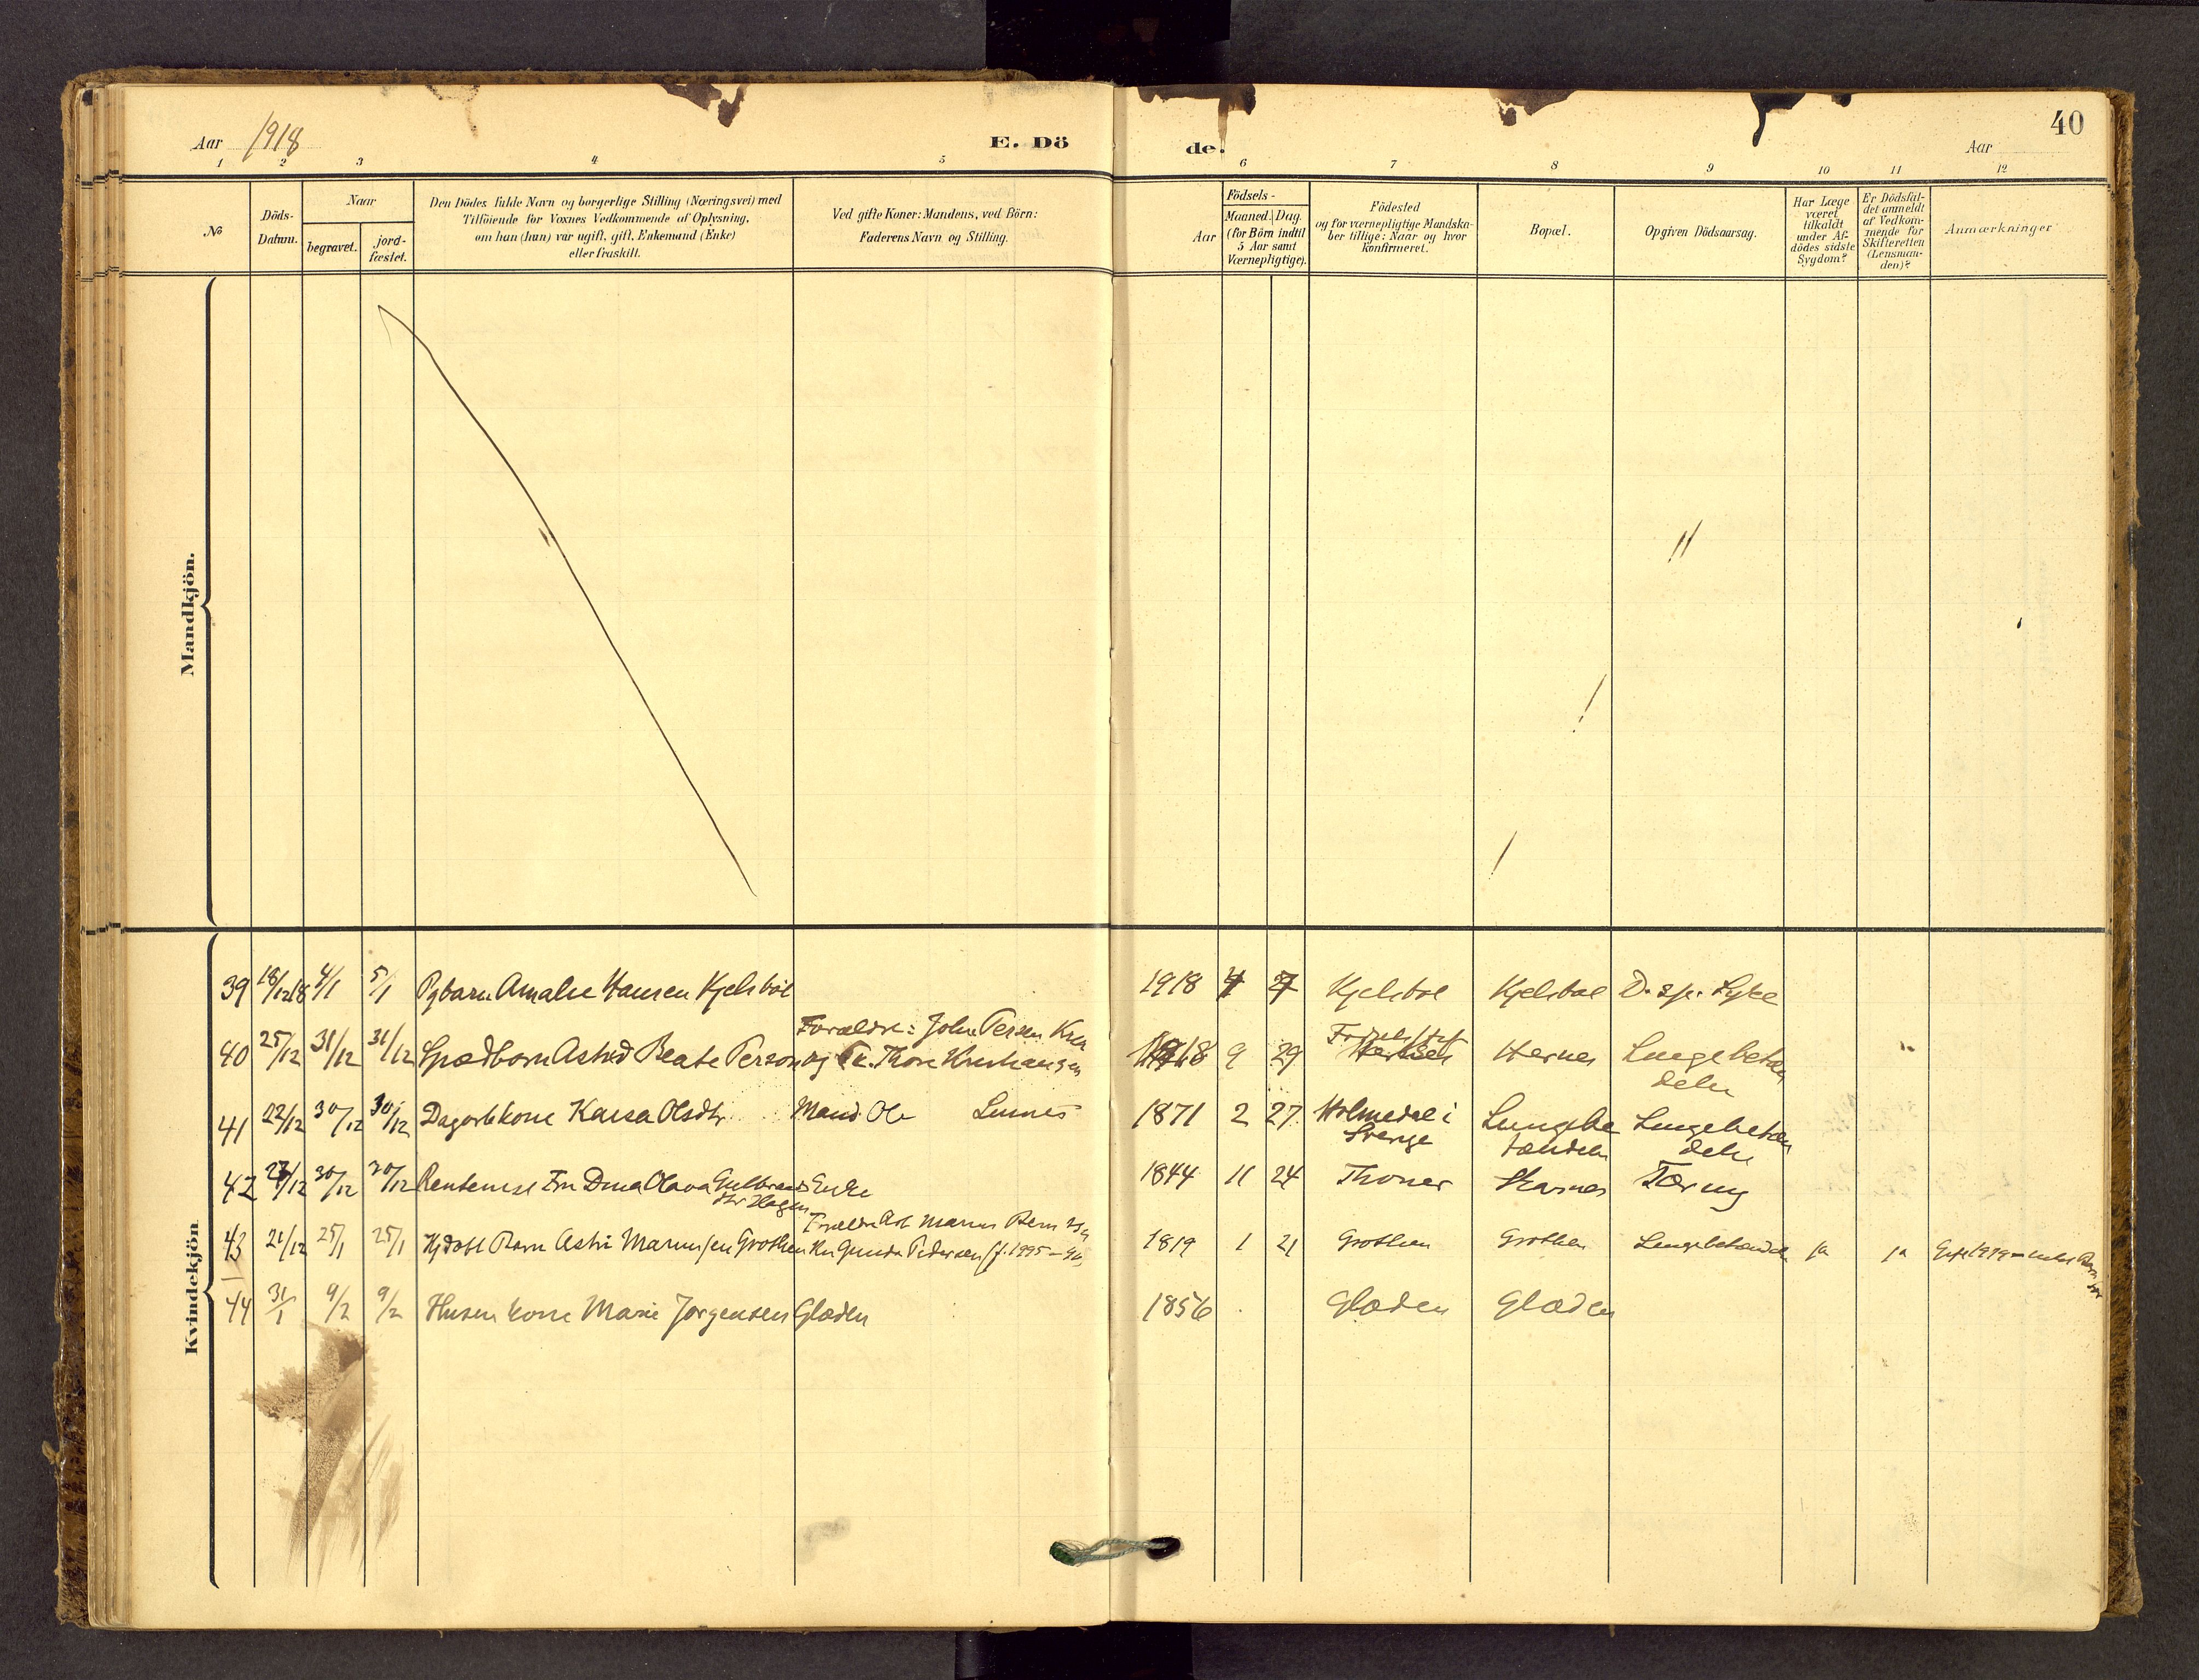 40
Aar 1918
E. Dö
de.
Aar
1 2 3 4 5 6 7 8 9 10 11 12
№
Döds-
Datum.
Naar
begravet.
jord-
fæstet.
Den Dödes fulde Navn og borgerlige Stilling (Næringsvei) med
Tilföiende for Voxnes Vedkommende af Oplysning,
om han (hun) var ugift, gift, Enkemand (Enke)
eller fraskilt.
Ved gifte Koner: Mandens, ved Börn:
Faderens Navn og Stilling.
Aar
Födsels-
Maaned. Dag.
(for Börn indtil
5 Aar samt
Værnepligtige).
Födested
og for værnepligtige Mandska-
ber tillige: Naar og hvor
konfirmeret.
Bopæl.
Opgiven Dödsaarsag.
Har Læge
været
tilkaldt
under Af-
dödes sidste
Sygdom?
Er Dödsfal-
det anmeldt
af Vedkom-
mende for
Skifteretten
(Lensman-
den)?
Anmærkninger
Mandkjön.
Kvindekjön
39 18/12 18 4/1 5/1 Pgbarn Amalie Hansen Kjelsböl 1918 4 27 Kjelsböl Kjelsböl D. sp. Syke
Forældre: John Persen
40 25/12 31/12 31/12 Spædbarn Astrid Beate Person og Thora 1918 9 29 Hernes Lungebetæn
delse
41 22/12 30/12 30/12 Dagarb kone Kaisa Olsdtr. Mand: Ole Lumes 1871 2 27 Holmedal i Lungebe Lungebetæn
Sverige tændelse delse
42 27/12 30/12 30/12 Rentenist Fru Dina Olava Gulbrands Enke 1844 11 24 Thoner Skarnes Tæring
dtr Hagen
43 21/12 25/1 25/1 Barn Astri Marinusen Grothen Gunda Pedersen 1819 1 21 Grothen Grothen Lungebetændelse ja ja
44 31/1 9/2 9/2 Husm kone Marie Jørgensen Glæden 1856 Glæden Glæden